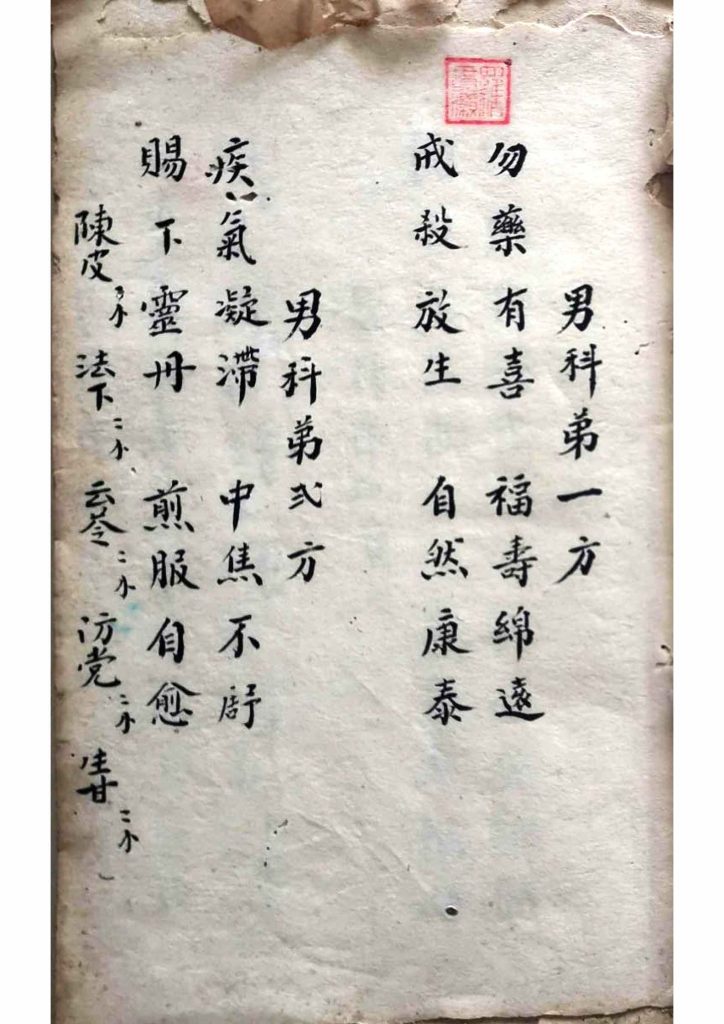 男科弟一方
勿藥有喜 福壽綿遠
戒殺放生 自然康泰
男科弟弍方
痰氣凝滯 中焦不舒
賜下靈丹 煎服自愈
陳皮 法下二小 云苓二小 汸党二小 生甘二小